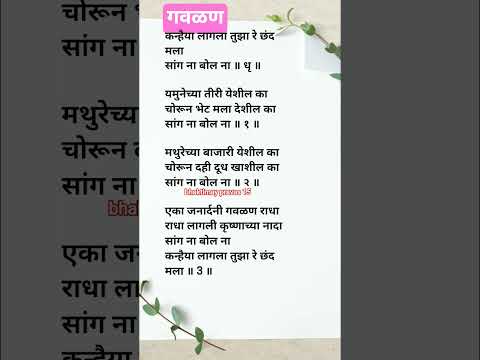 गवळण
कन्हैया लागला तुझा रे छंद
मला
सांग ना बोल ना ॥ धृ ॥
यमुनेच्या तीरी येशील का
चोरून भेट मला देशील का
सांग ना बोल ना ॥ १ ॥
मथुरेच्या बाजारी येशील का
चोरून दही दूध खाशील का
सांग ना बोल ना ॥ २ ॥
bhaktimay pravas 15
एका जनार्दनी गवळण राधा
राधा लागली कृष्णाच्या नादा
सांग ना बोल ना
कन्हैया लागला तुझा रे छंद
मला ॥ 3 ॥